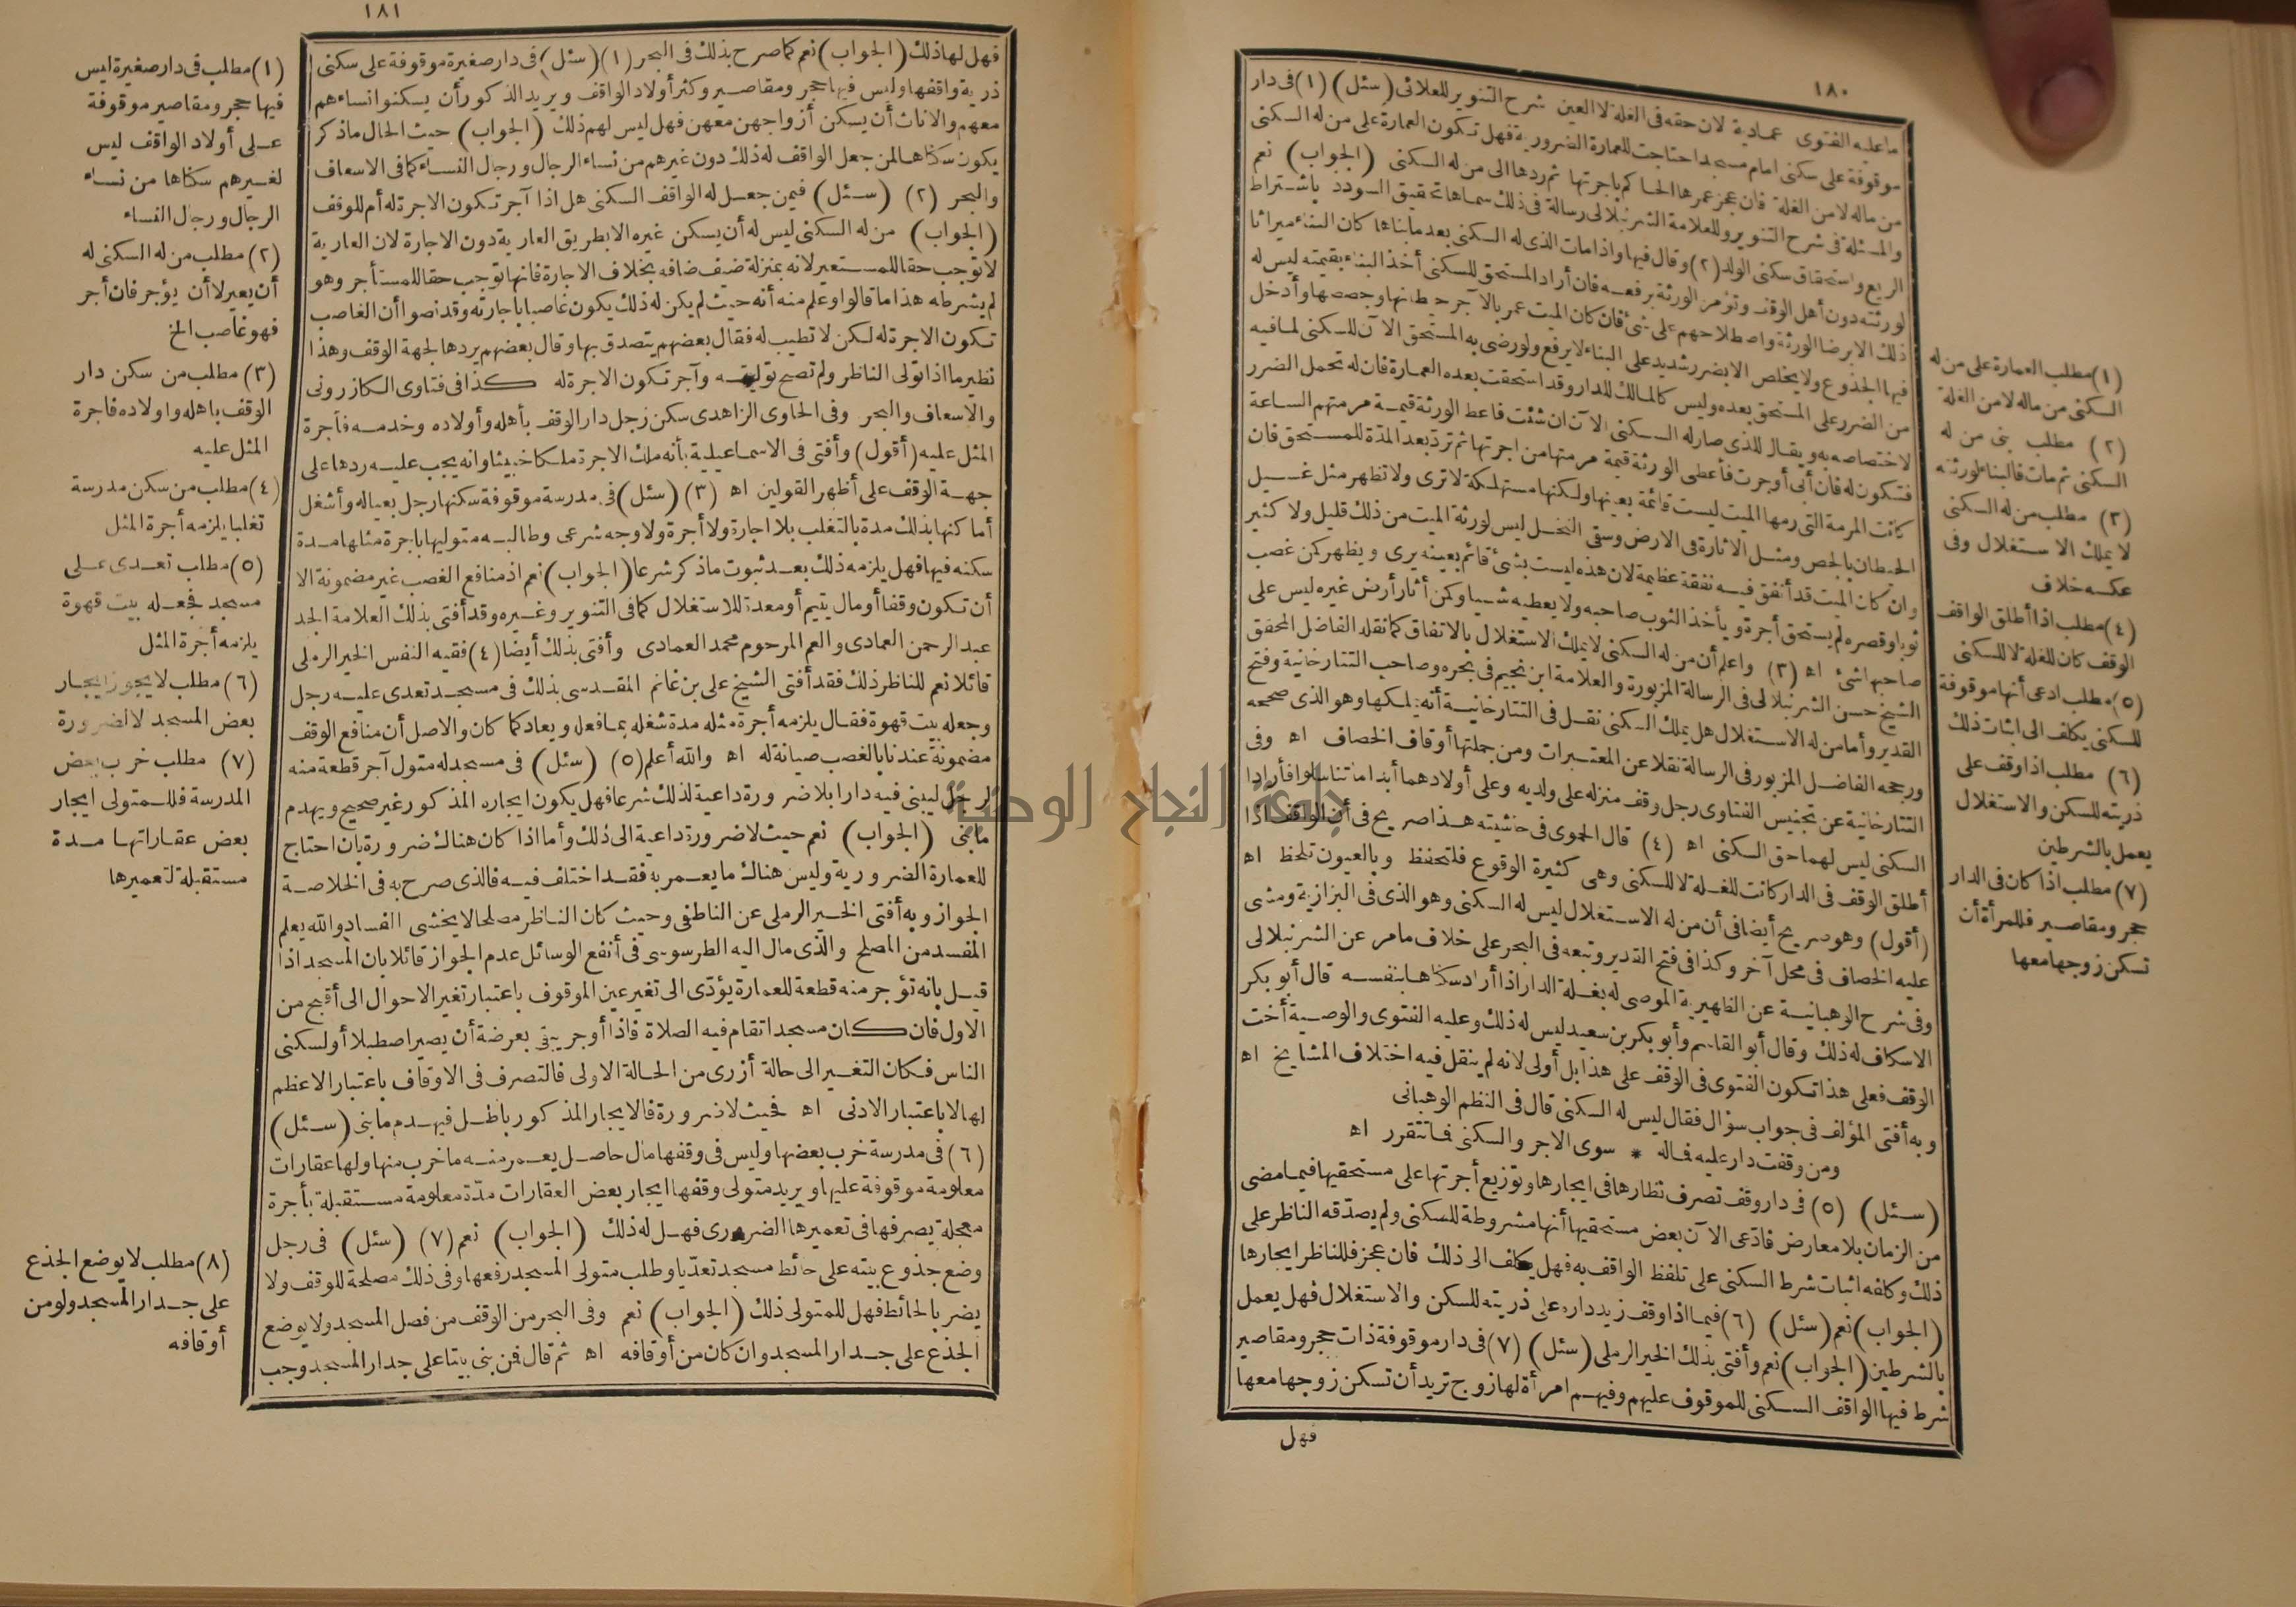 ١٨٠
ما عليه الفتوى عمادية لان حقه فى الغلة لا العين شرح التنوير للعلائى (سئل) (١) فى دار
موقوفة على سكنى امام مسجد احتاجت للعمارة الضرورية فهل تكون العمارة على من له السكنى
من ماله لا من الغلة فان عجز عمرها الحاكم باجرتها ثم ردها الى من له السكنى (الجواب) نعم
والمسئلة فى شرح التنوير وللعلامة الشرنبلالى رسالة فى ذلك سماها تحقيق السودد باشتراط
الريع واستحقاق سكنى الولد (٢) وقال فيها واذا مات الذى له السكنى بعد ما بناها كان البناء ميراثا
لورثته دون أهل الوقف وتؤمر الورثة برفعه فان أراد المستحق للسكنى أخذ البناء بقيمته ليس له
ذلك الا برضا الورثة واصطلاحهم على شئ فان كان الميت عمر بالآجر حيطانها وجصصها وأدخل
فيها الجذوع ولا يخلص الا بضرر شديد على البناء لا يرفع ولو رضى به المستحق الآن للسكنى لما فيه
من الضرر على المستحق بعده وليس كالمالك للدار وقد استحقت بعده العمارة فان له تحمل الضرر
لاختصاصه به ويقال للذى صار له السكنى الآن ان شئت فاعط الورثة قيمة مرمتهم الساعة
فتكون له فان أبى أوجرت فأعطى الورثة قيمة مرمتها من اجرتها ثم ترد بعد المدة للمستحق فان
كانت المرمة التى رمها الميت ليست قائمة بعينها ولكنها مستهلكة لا ترى ولا تظهر مثل غسيل
الحيطان بالجص ومثل الاثارة فى الارض وسقى النخل ليس لورثة الميت من ذلك قليل ولا كثير
وان كان الميت قد أنفق فيه نفقة عظيمة لان هذه ليست بشئ قائم بعينه يرى ويظهر كمن غصب
ثوبا وقصره لم يستحق أجرة ويأخذ الثوب صاحبه ولا يعطيه شيا وكمن أثار أرض غيره ليس على
صاحبها شئ اه (٣) واعلم أن من له السكنى لا يملك الاستغلال بالاتفاق كما نقله الفاضل المحقق
الشيخ حسن الشرنبلالى فى الرسالة المزبورة والعلامة ابن نجيم فى بحره وصاحب التتارخانية وفتح
القدير وأما من له الاستغلال هل يملك السكنى نقل فى التتارخانية أنه يملكها وهو الذى صححه
ورجحه الفاضل المزبور فى الرسالة نقلا عن المعتبرات ومن جملتها أوقاف الخصاف اه وفى
التتارخانية عن تجنيس الفتاوى رجل وقف منزله على ولديه وعلى أولادهما أبدا ما تناسلوا فأرادا
السكنى ليس لهما حق السكنى اه (٤) قال الحموى فى حاشيته هذا صريح فى أن الواقف اذا
أطلق الوقف فى الدار كانت للغلة لا للسكنى وهى كثيرة الوقوع فلتحفظ وبالعيون تلحظ اه
(أقول) وهو صريح أيضا فى أن من له الاستغلال ليس له السكنى وهو الذى فى البزازية ومشى
عليه الخصاف فى محل آخر وكذا فى فتح القدير وتبعه فى البحر على خلاف ما مر عن الشرنبلالى
وفى شرح الوهبانية عن الظهيرية الموصى له بغلة الدار اذا أراد سكناها بنفسه قال أبو بكر
الاسكاف له ذلك وقال أبو القاسم وأبو بكر بن سعيد ليس له ذلك وعليه الفتوى والوصية أخت
الوقف فعلى هذا تكون الفتوى فى الوقف على هذا بل أولى لانه لم ينقل فيه اختلاف المشايخ اه
وبه أفتى المؤلف فى جواب سؤال فقال ليس له السكنى قال فى النظم الوهبانى
ومن وقفت دار عليه فماله * سوى الاجر والسكنى فما تتقرر اه
(سئل) (٥) فى دار وقف تصرف نظارها فى ايجارها وتوزيع أجرتها على مستحقيها فيما مضى
من الزمان بلا معارض فادعى الآن بعض مستحقيها أنها مشروطة للسكنى ولم يصدقه الناظر على
ذلك وكلفه اثبات شرط السكنى على تلفظ الواقف به فهل يكلف الى ذلك فان عجز فللناظر ايجارها
(الجواب) نعم (سئل) (٦) فيما اذا وقف زيد داره على ذريته للسكن والاستغلال فهل يعمل
بالشرطين (الجواب) نعم وأفتى بذلك الخير الرملى (سئل) (٧) فى دار موقوفة ذات حجر ومقاصير
شرط فيها الواقف السكنى للموقوف عليهم وفيهم امرأة لها زوج تريد أن تسكن زوجها معها
فهل
(١) مطلب العمارة على من له
السكنى من ماله لا من الغلة
(٢) مطلب بنى من له
السكنى ثم مات فالبناء لورثته
(٣) مطلب من له السكنى
لا يملك الاستغلال وفى
عكسه خلاف
(٤) مطلب اذا أطلق الواقف
الوقف كان للغلة لا للسكنى
(٥) مطلب ادعى أنها موقوفة
للسكنى يكلف الى اثبات ذلك
(٦) مطلب اذا وقف على
ذريته للسكن والاستغلال
يعمل بالشرطين
(٧) مطلب اذا كان فى الدار
حجر ومقاصير فللمرأة أن
تسكن زوجها معها
١٨١
فهل لها ذلك (الجواب) نعم كما صرح بذلك فى البحر (١) (سئل) فى دار صغيرة موقوفة على سكنى
ذرية واقفها وليس فيها حجر ومقاصير وكثر أولاد الواقف ويريد الذكور أن يسكنوا نساءهم
معهم والاناث أن يسكن أزواجهن معهن فهل ليس لهم ذلك (الجواب) حيث الحال ما ذكر
يكون سكناها لمن جعل الواقف له ذلك دون غيرهم من نساء الرجال ورجال النساء كما فى الاسعاف
والبحر (٢) (سئل) فيمن جعل له الواقف السكنى هل اذا آجر تكون الاجرة له أم للوقف
(الجواب) من له السكنى ليس له أن يسكن غيره الا بطريق العارية دون الاجارة لان العارية
لا توجب حقا للمستعير لانه بمنزلة ضيف ضافه بخلاف الاجارة فانها توجب حقا للمستأجر وهو
لم يشرطه هذا ما قالوا وعلم منه أنه حيث لم يكن له ذلك يكون غاصبا باجارته وقد نصوا أن الغاصب
تكون الاجرة له لكن لا تطيب له فقال بعضهم يتصدق بها وقال بعضهم يردها لجهة الوقف وهذا
نظير ما اذا تولى الناظر ولم تصح توليته وآجر تكون الاجرة له كذا فى فتاوى الكازرونى
والاسعاف والبحر وفى الحاوى الزاهدى سكن رجل دار الوقف بأهله وأولاده وخدمه فأجرة
المثل عليه (أقول) وأفتى فى الاسماعيلية بأنه ملك الاجرة ملكا خبيثا وانه يجب عليه ردها على
جهة الوقف على أظهر القولين اه (٣) (سئل) فى مدرسة موقوفة سكنها رجل بعياله وأشغل
أماكنها بذلك مدة بالتغلب بلا اجارة ولا أجرة ولا وجه شرعى وطالبه متوليها باجرة مثلها مدة
سكنه فيها فهل يلزمه ذلك بعد ثبوت ما ذكر شرعا (الجواب) نعم اذ منافع الغصب غير مضمونة الا
أن تكون وقفا أو مال يتيم أو معدة للاستغلال كما فى التنوير وغيره وقد أفتى بذلك العلامة الجد
عبد الرحمن العمادى والعم المرحوم محمد العمادى وأفتى بذلك أيضا (٤) فقيه النفس الخير الرملى
قائلا نعم للناظر ذلك فقد أفتى الشيخ على بن غانم المقدسى بذلك فى مسجد تعدى عليه رجل
وجعله بيت قهوة فقال يلزمه أجرة مثله مدة شغله بما فعله ويعاد كما كان والاصل أن منافع الوقف
مضمونة عندنا بالغصب صيانة له اه والله أعلم (٥) (سئل) فى مسجد له متول آجر قطعة منه
لرجل ليبنى فيه دارا بلا ضرورة داعية لذلك شرعا فهل يكون ايجاره المذكور غير صحيح ويهدم
ما بنى (الجواب) نعم حيث لا ضرورة داعية الى ذلك وأما اذا كان هناك ضرورة بان احتاج
للعمارة الضرورية وليس هناك ما يعمر به فقد اختلف فيه فالذى صرح به فى الخلاصة
الجواز وبه أفتى الخير الرملى عن الناطفى وحيث كان الناظر مصلحا لا يخشى الفساد والله يعلم
المفسد من المصلح والذى مال اليه الطرسوسى فى أنفع الوسائل عدم الجواز قائلا بان المسجد اذا
قيل بانه تؤجر منه قطعة للعمارة يؤدى الى تغير عين الموقوف باعتبار تغير الاحوال الى أقبح من
الاول فان كان مسجدا تقام فيه الصلاة فاذا أوجر يبقى بعرضة أن يصير اصطبلا أو لسكنى
الناس فكان التغير الى حالة أزرى من الحالة الاولى فالتصرف فى الاوقاف باعتبار الاعظم
لها لا باعتبار الادنى اه فحيث لا ضرورة فالايجار المذكور باطل فيهدم ما بنى (سئل)
(٦) فى مدرسة خرب بعضها وليس فى وقفها مال حاصل يعمر منه ما خرب منها ولها عقارات
معلومة موقوفة عليها ويريد متولى وقفها ايجار بعض العقارات مدة معلومة مستقبلة بأجرة
معجلة يصرفها فى تعميرها الضرورى فهل له ذلك (الجواب) نعم (٧) (سئل) فى رجل
وضع جذوع بيته على حائط مسجد تعديا وطلب متولى المسجد رفعها وفى ذلك مصلحة للوقف ولا
يضر بالحائط فهل للمتولى ذلك (الجواب) نعم وفى البحر من الوقف من فصل المسجد ولا يوضع
الجذع على جدار المسجد وان كان من أوقافه اه ثم قال فمن بنى بيتا على جدار المسجد وجب
(١) مطلب فى دار صغيرة ليس
فيها حجر ومقاصير موقوفة
على أولاد الواقف ليس
لغيرهم سكناها من نساء
الرجال ورجال النساء
(٢) مطلب من له السكنى له
أن يعير لا أن يؤجر فان أجر
فهو غاصب الخ
(٣) مطلب من سكن دار
الوقف باهله واولاده فاجرة
المثل عليه
(٤) مطلب من سكن مدرسة
تغلبا يلزمه أجرة المثل
(٥) مطلب تعدى على
مسجد فجعله بيت قهوة
يلزمه أجرة المثل
(٦) مطلب لا يجوز ايجار
بعض المسجد لا لضرورة
(٧) مطلب خرب بعض
المدرسة فللمتولى ايجار
بعض عقاراتها مدة
مستقبلة لتعميرها
(٨) مطلب لا يوضع الجذع
على جدار المسجد ولو من
أوقافه
جامعة النجاح الوطنية